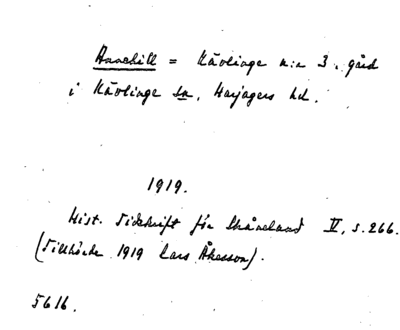 Annehill = Kävlinge n:r 3, gård
i Kävlinge sn, Harjagers hd.
1919.
Hist. Tidskrift för Skåneland IV, s. 266.
(Tillhörde 1919 Lars Åkesson).
5616.